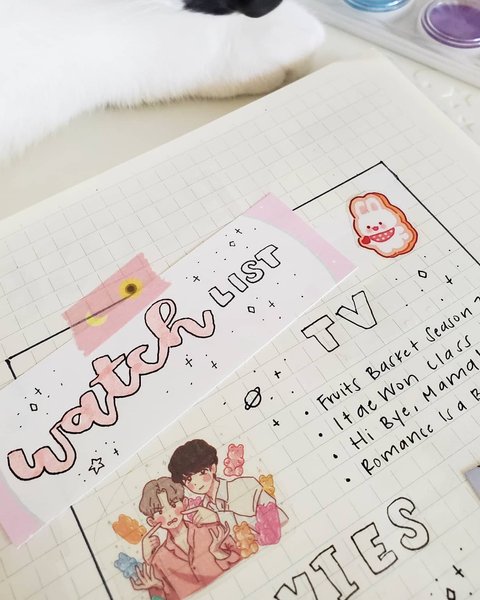 watch LIST
TV
• Fruits Basket Season
• Itaewon Class
• Hi Bye,
• Romance Is a